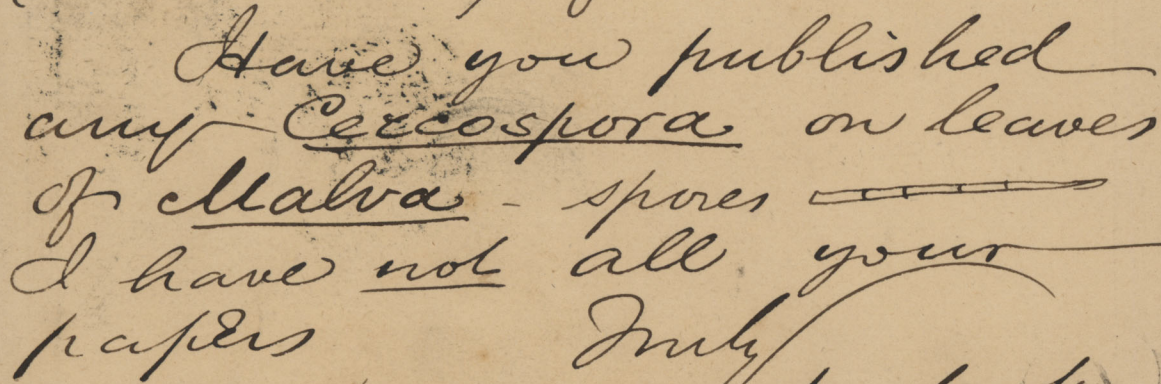 Have you published
any Cercospora on leaves
of Malva - spores
I have not all your
papers Truly